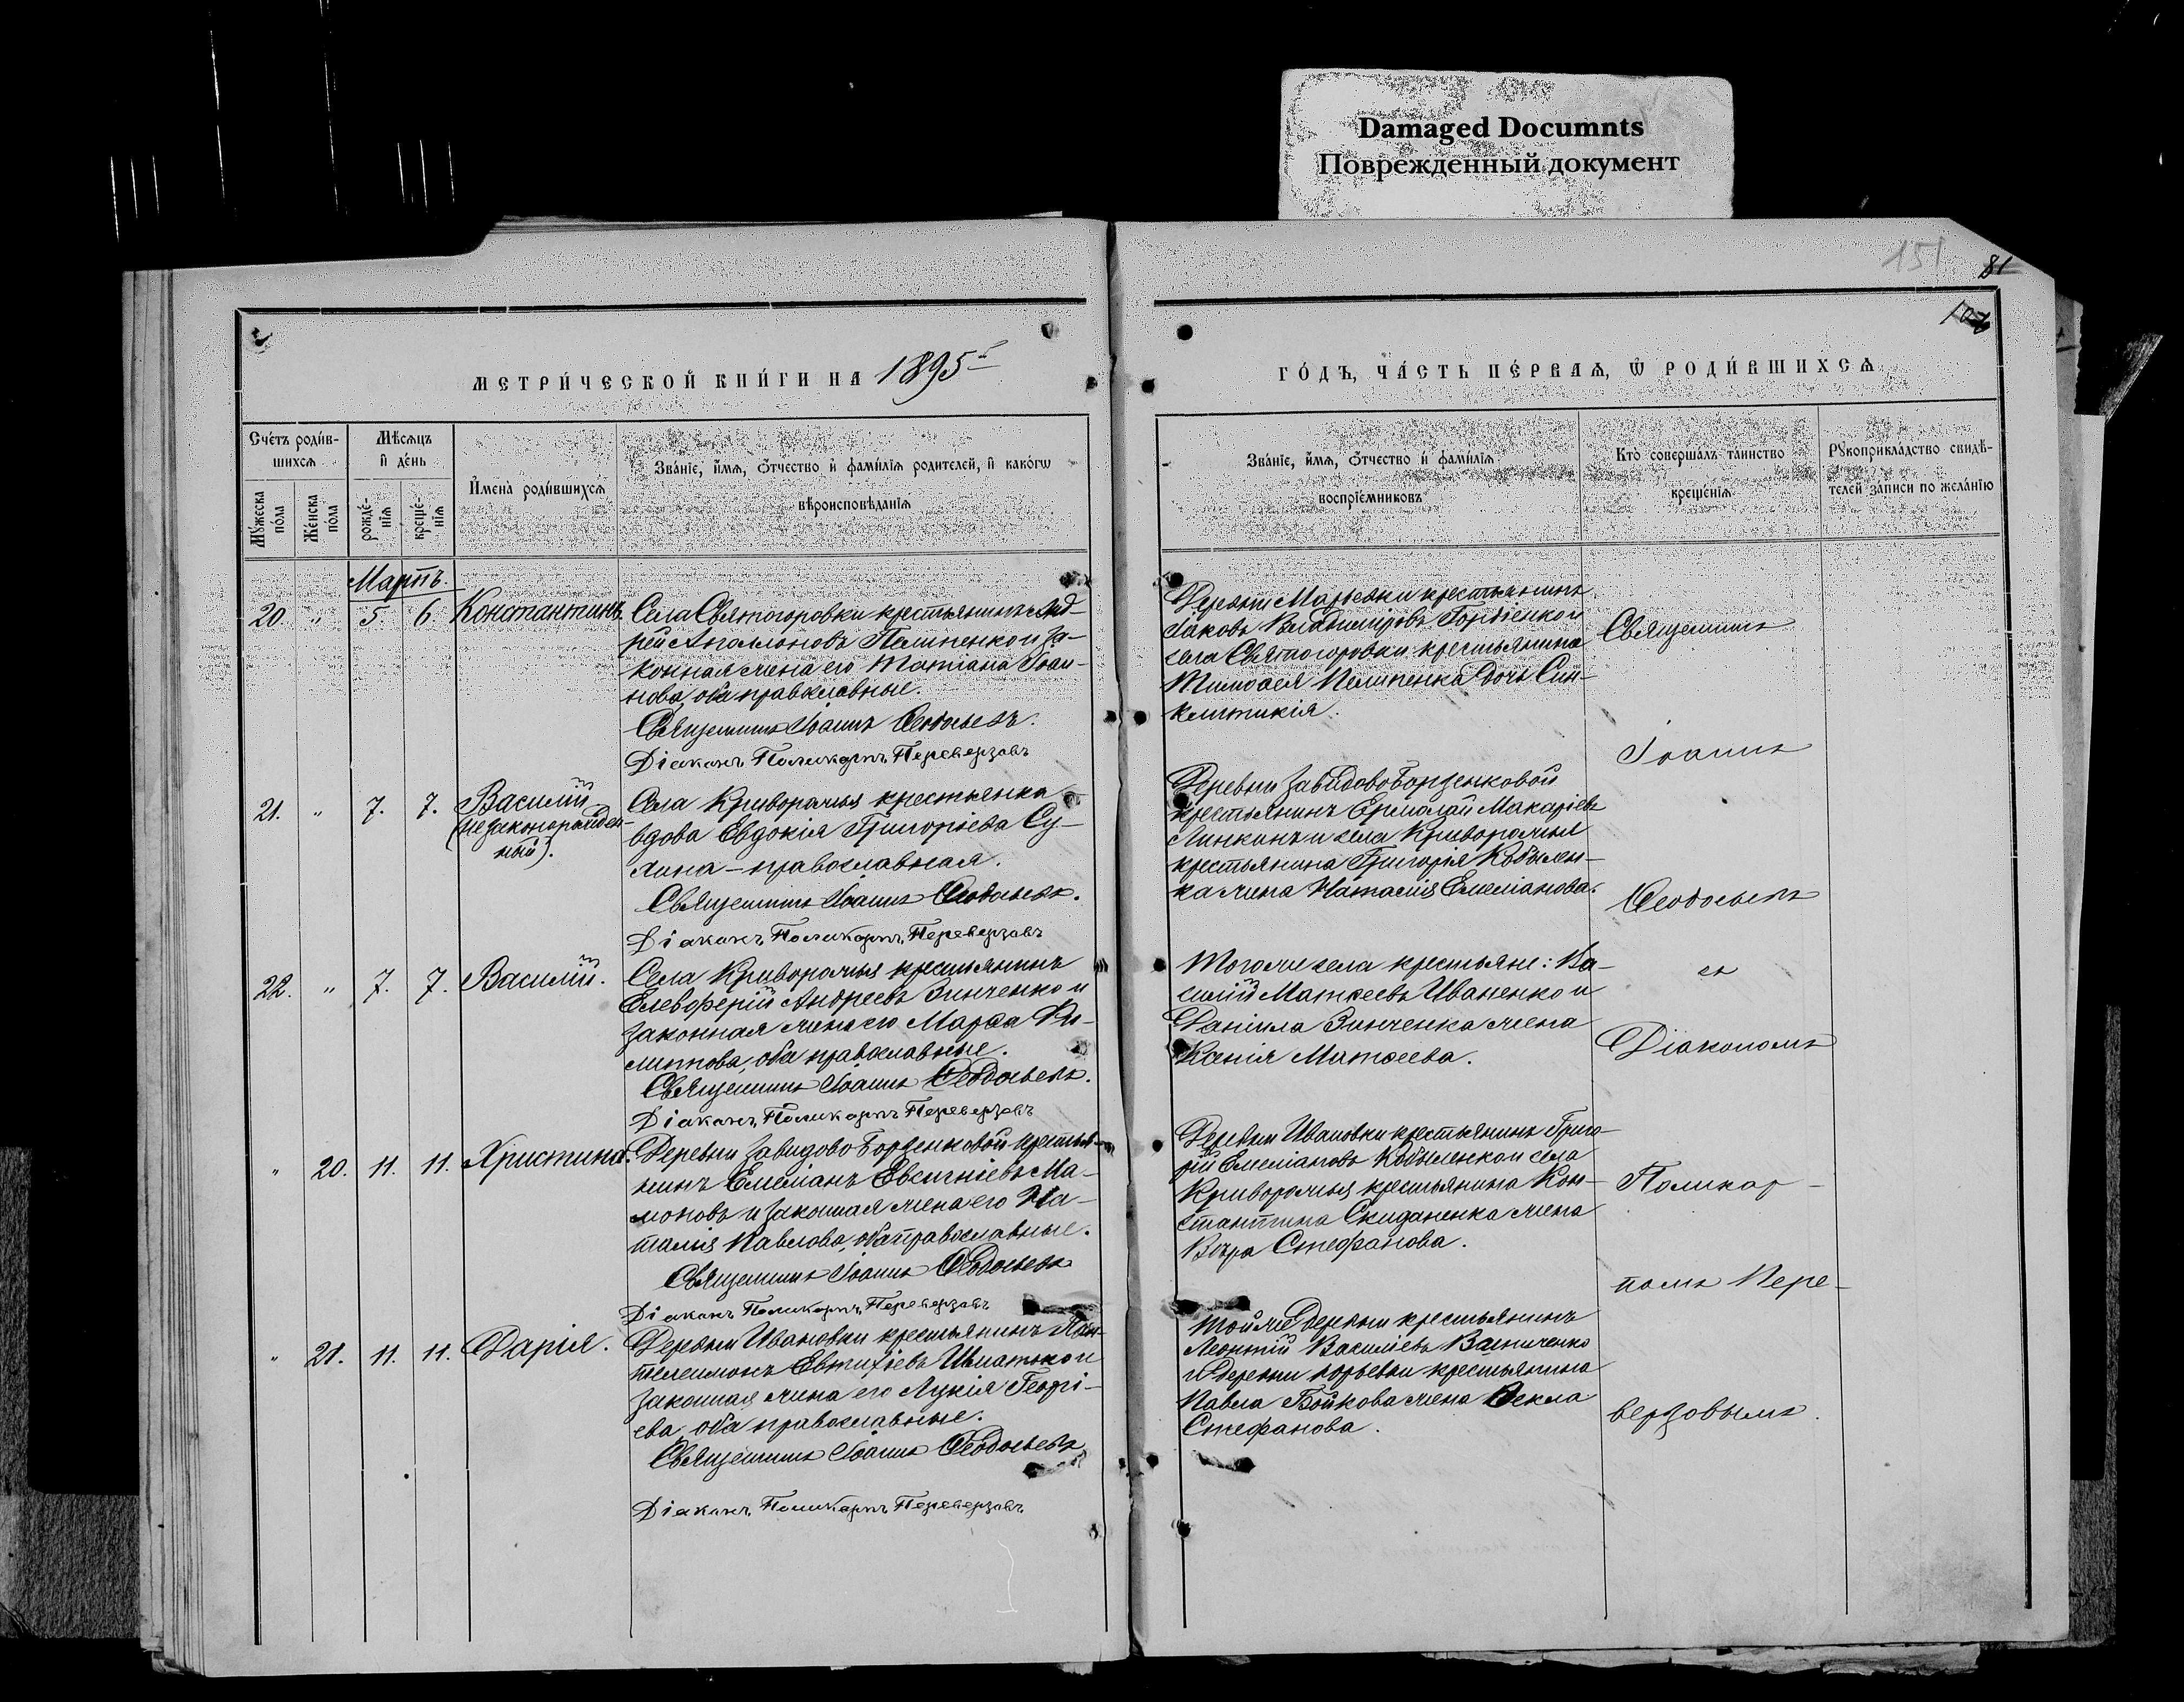 Damaged Documnts
Поврежденный документ
151
81
МЕТРИ́ЧЕСКОЙ КНИ́ГИ НА 1895
ГО́ДЪ, ЧА́СТЬ ПЕ́РВАѦ, Ѿ РОДИ́ВШИХСѦ
Сче́тъ роди́в-
шихсѧ
Мꙋ́жеска
по́ла
Же́нска
по́ла
Мѣ́сѧцъ
и҆ де́нь
рожде́-
нїѧ
креще́-
нїѧ
И҆мена̀ роди́вшихсѧ
Зва́нїе, и҆́мѧ, ѻ҆́тчество и҆ фами́лїѧ родителей, и҆ како́гѡ
вѣроисповѣ́данїѧ
Зва́нїе, и҆́мѧ, ѻ҆́тчество и҆ фами́лїѧ
воспрїе́мниковъ
Кто̀ соверша́лъ та́инство
креще́нїѧ
Рꙋкоприкла́дство свидѣ́-
телей за́писи по жела́нїю
Мартъ.
20. " 5. 6. Константинъ.
Села Святогоровки крестьянинъ Анд-
рей Аполлоновъ Пелипенко и за-
конная жена его Татіана Іоан-
нова, оба православные.
Священникъ Іоаннъ Ѳеодосьевъ.
Діаконъ Поликарпъ Переверзовъ
Деревни Марьевки крестьянинъ
Іаковъ Владиміровъ Гордіенко и
села Святогоровки крестьянина
Тимоѳея Пелипенка дочь Син-
клитикія.
21. " 7. 7. Василій
(незаконорожден-
ный).
Села Криворожья крестьянка
вдова Евдокія Григоріева Су-
лина - православная.
Священникъ Іоаннъ Ѳеодосьевъ.
Діаконъ Поликарпъ Переверзовъ
Деревни Завидово Борзенковой
крестьянинъ Ермолай Макаріевъ
Линкинъ и села Криворожья
крестьянина Григорія Кобылен-
ка жена Наталія Емеліанова.
22. " 7. 7. Василій.
Села Криворожья крестьянинъ
Елевферій Андреевъ Зинченко и
законная жена его Марѳа Фи-
липпова, оба православные.
Священникъ Іоаннъ Ѳеодосьевъ.
Діаконъ Поликарпъ Переверзовъ
Тогоже села крестьяне: Ва-
силій Матѳеевъ Иваненко и
Даніила Зинченка жена
Ксенія Матѳеева.
" 20. 11. 11. Христина.
Деревни Завидово Борзенковой крестья-
нинъ Емеліанъ Евсигніевъ Ма-
моновъ и законная жена его На-
талія Павлова, оба православные.
Священникъ Іоаннъ Ѳеодосьевъ
Діаконъ Поликарпъ Переверзовъ
Деревни Ивановки крестьянинъ Григо-
рій Емеліановъ Кобыленко и села
Криворожья крестьянина Кон-
стантина Скиданенка жена
Вѣра Стефанова.
" 21. 11. 11. Дарія.
Деревни Ивановки крестьянинъ Пан-
телеимонъ Евтихіевъ Игнатько и
законная жена его Лукія Георгі-
ева, оба православные.
Священникъ Іоаннъ Ѳеодосьевъ
Діаконъ Поликарпъ Переверзовъ
Тойже деревни крестьянинъ
Леонтій Василіевъ
и деревни Юрьевки крестьянина
Павла Бойкова жена Ѳекла
Стефанова.
Священникъ
Іоаннъ
Ѳеодосьевъ
съ
Діакономъ
Поликар-
помъ Пере-
верзовымъ.